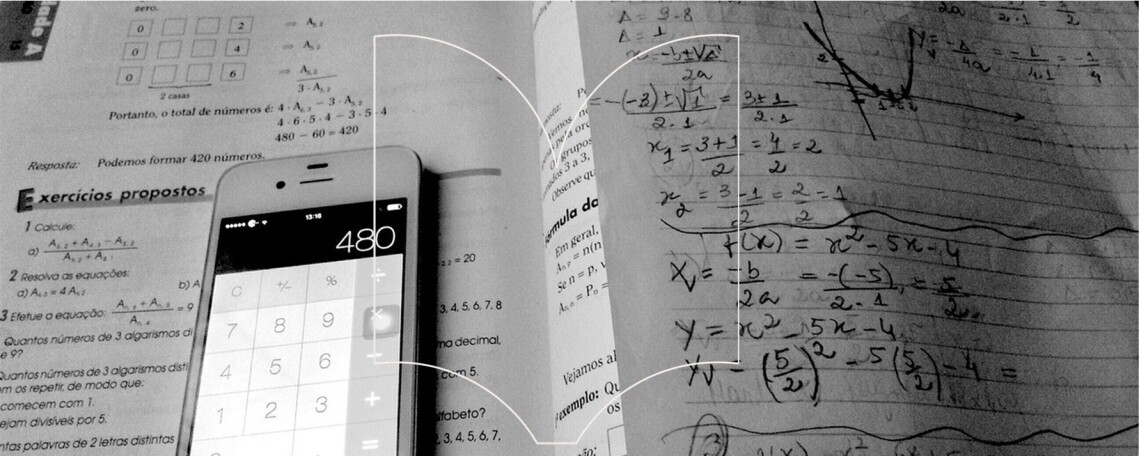 zero.
0 2 ⇒ A₅,₂
0 4 ⇒ A₅,₂
0 6 ⇒ A₅,₂
2 casas
3 · A₅,₂
Portanto, o total de números é: 4 · A₆,₃ − 3 · A₅,₂
4 · 6 · 5 · 4 − 3 · 5 · 4
480 − 60 = 420
Resposta: Podemos formar 420 números.
Exercícios propostos
1 Calcule:
a)
2 Resolva as equações:
b) A
3 Efetue a equação:
= 9
Quantos números de 3 algarismos di
e 9?
Quantos números de 3 algarismos disti
m os repetir, de modo que:
comecem com 1.
ejam divisíveis por 5.
ntas palavras de 2 letras distintas
= 20
3, 4, 5, 6, 7, 8
ma decimal,
com 5.
lfabeto?
2, 3, 4, 5, 6, 7,
13:16
480
C +/- % ÷
7 8 9 ×
4 5 6 −
1 2 3 +
=
grupos
ados 3 a 3,
Observe qu
órmula da
Em geral,
Aₙ,ₚ = n(n
Se n = p, v
Aₙ,ₙ = Pₙ =
Vejamos al
exemplo: Qu
os
Δ = 9 - 8
Δ = 1
x = -b ± √Δ / 2a
= -(-3) ± √1 / 2·1 = 3 ± 1 / 2·1
x₁ = 3+1 / 2 = 4/2 = 2
x₂ = 3-1 / 2 = 2/2 = 1
Yv = -Δ/4a = -1/4·1 = -1/4
f(x) = x² - 5x - 4
Xv = -b/2a = -(-5)/2·1 = 5/2
Y = x² - 5x - 4
Yv = (5/2)² - 5(5/2) - 4 =
3